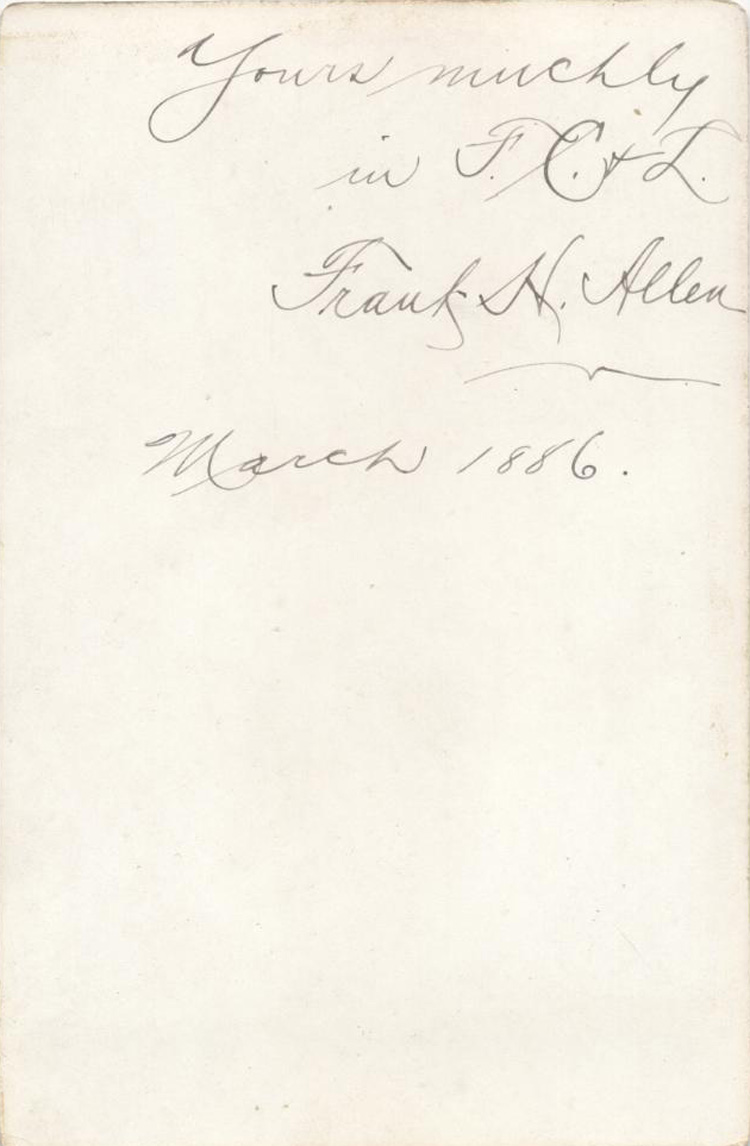 Yours muchly
in F. C. & L.
Frank H. Allen
March 1886.